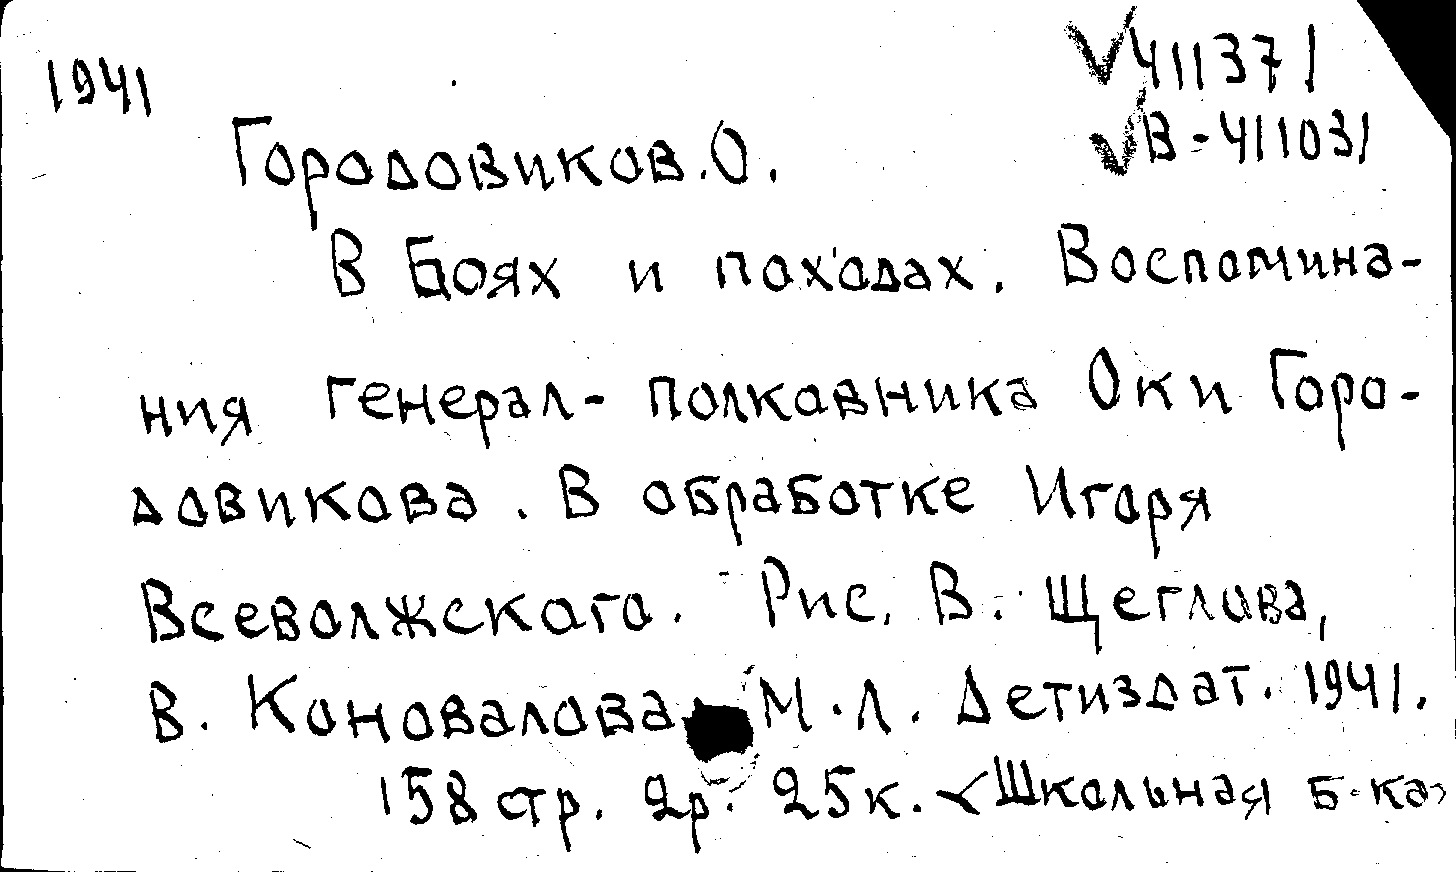 1941
√411371
√В-411031
Городовиков.О.
В Боях и походах. Воспомина-
ния генерал-полковника Оки Горо-
довикова. В обработке Игоря
Всеволжского. Рис. В. Щеглова,
В. Коновалова. М.Л. Детиздат. 1941.
158 стр. 2р. 25к. <Школьная б-ка>